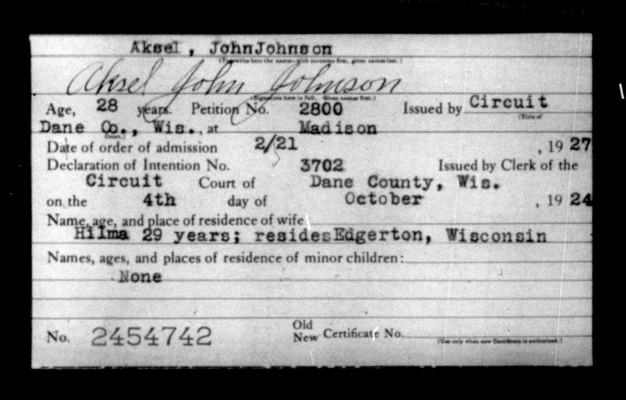 Aksel, JohnJohnson
(Typewrite here the name with surname first, given names last.)
Aksel John Johnson
(Signature here in full. Given names first.)
Age, 28 years. Petition No. 2800 Issued by Circuit
(Title of
Dane Co., Wis., at Madison
Court.)
Date of order of admission 2/21 , 1927
Declaration of Intention No. 3702 Issued by Clerk of the
Circuit Court of Dane County, Wis.
on the 4th day of October , 1924
Name, age, and place of residence of wife
Hilma 29 years; residesEdgerton, Wisconsin
Names, ages, and places of residence of minor children:
None
No. 2454742 Old New Certificate No.
(Use only when new Certificate is authorized.)